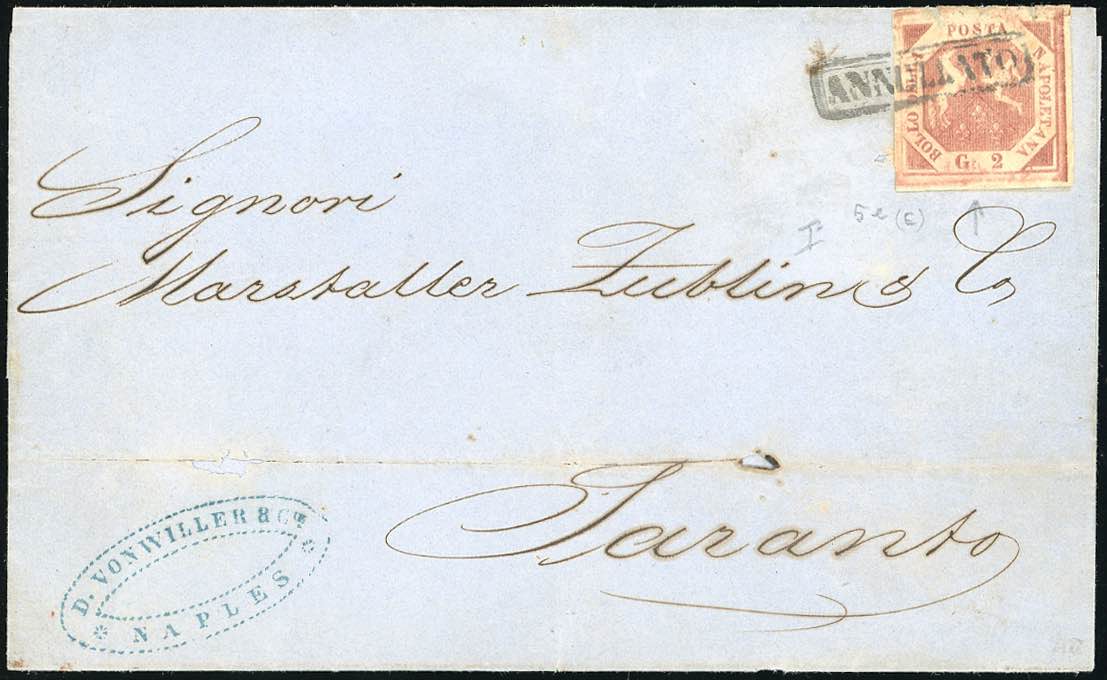 POSTA
NAPOLETANA
BOLLO DELLA
G. 2
ANNULLATO
5e (E)
Signori
Marstaller Zublin & Co
Taranto
D. VONWILLER & Co
* NAPLES *